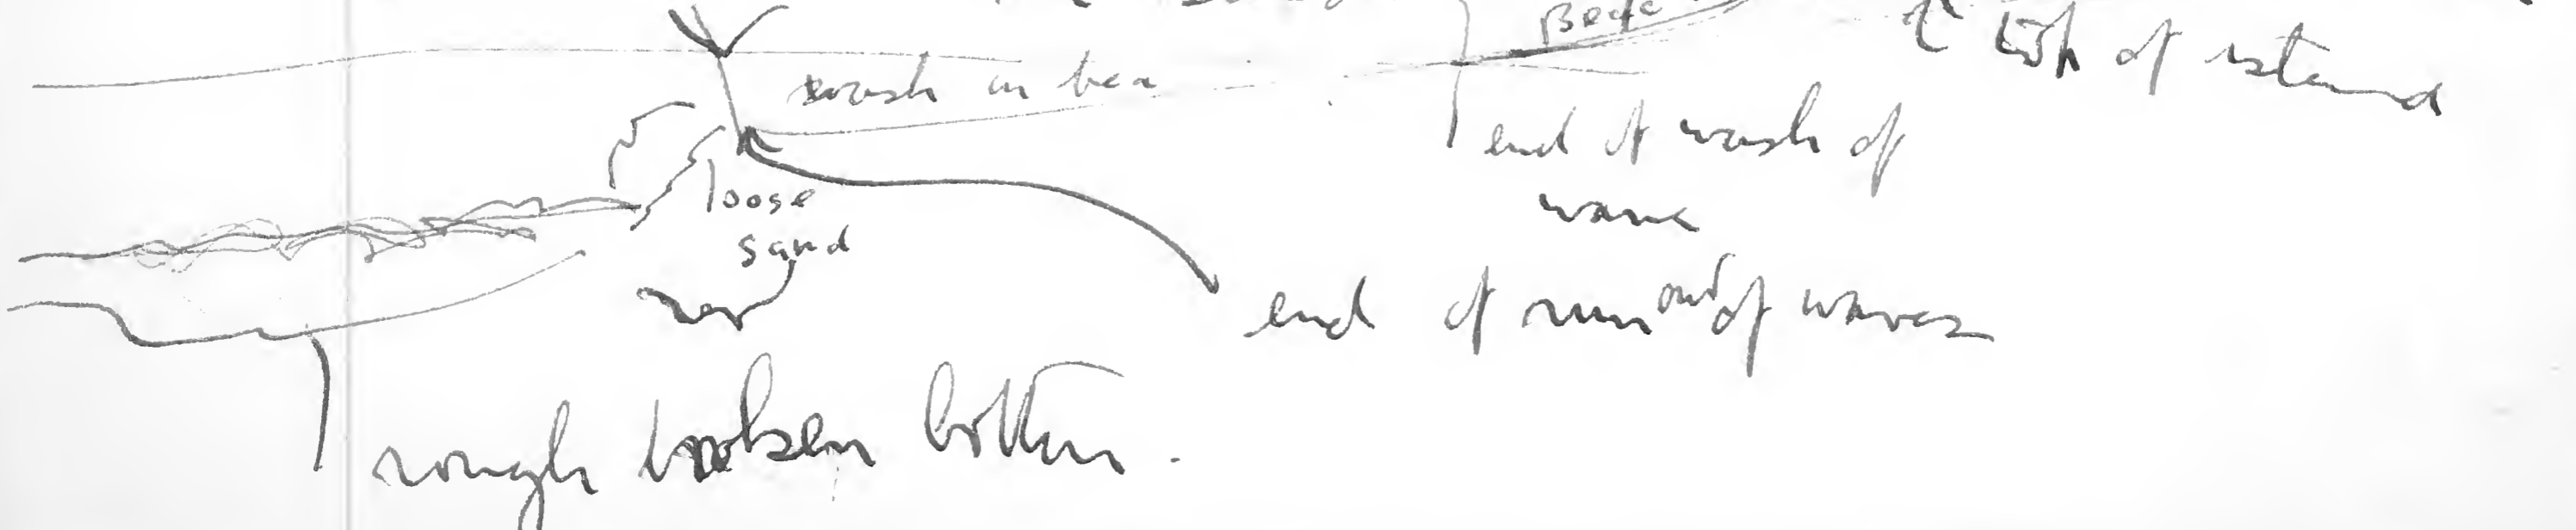 top of island
wash on
end of wash of
wave
loose
sand
end of run out of waves
rough broken bottom.